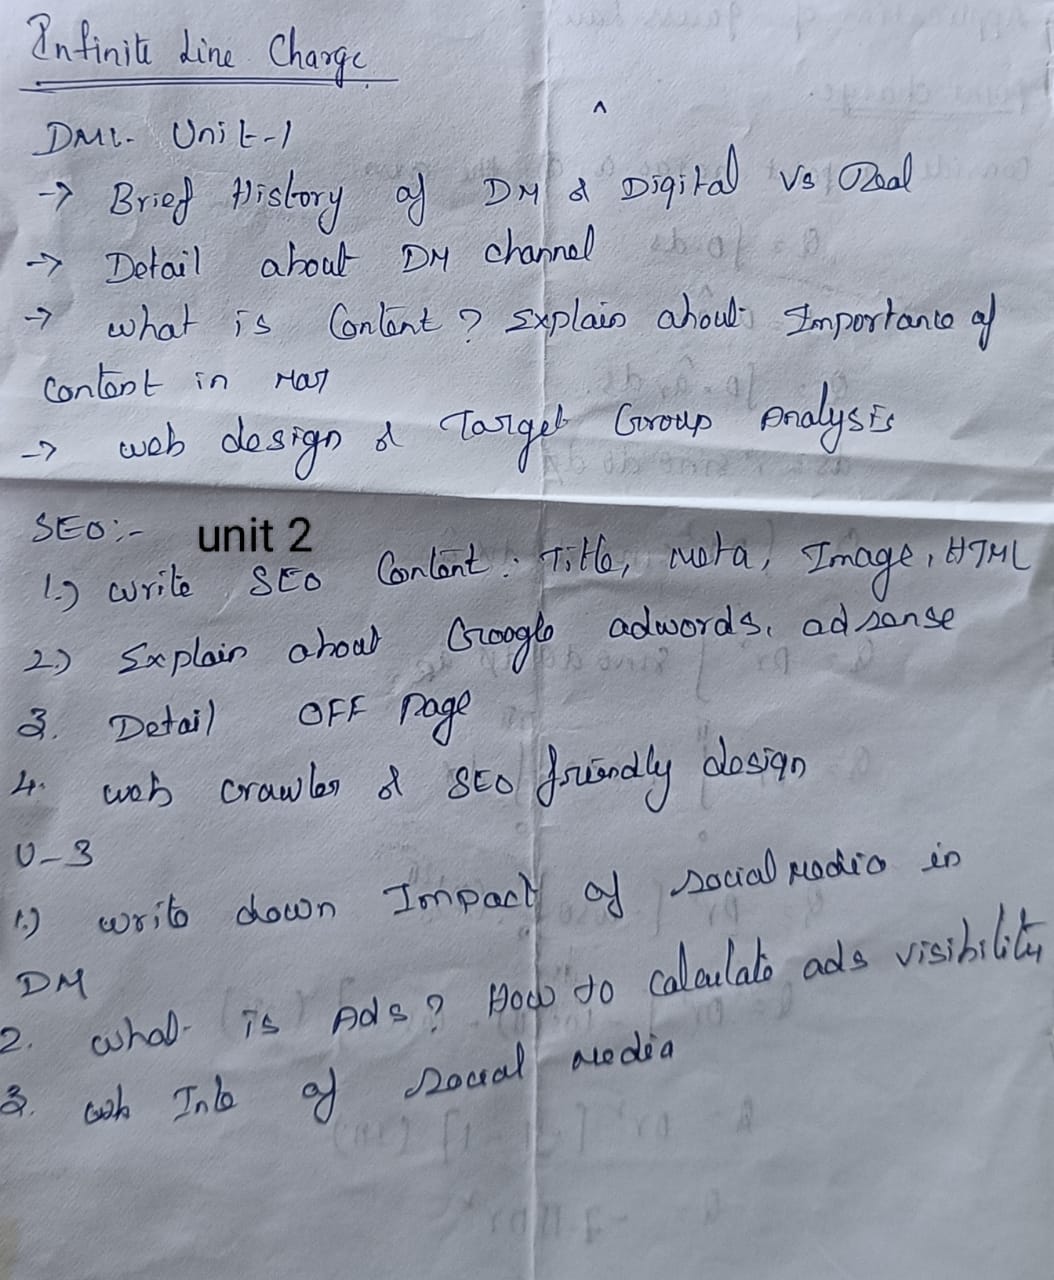 Infinite Line Charge
DM1- Unit-1
→ Brief History of DM & Digital Vs Real
→ Detail about DM channel
→ what is Content? Explain about Importance of
Content in
→ web design & Target Group Analysis
SEO:- unit 2
1.) write SEO Content: Title, Meta, Image, HTML
2.) Explain about Google adwords, adsense
3. Detail OFF Page
4. web crawler & SEO friendly design
U-3
1.) write down Impact of social Media in
DM
2. what is Ads? How to calculate ads visibility
3. of social media